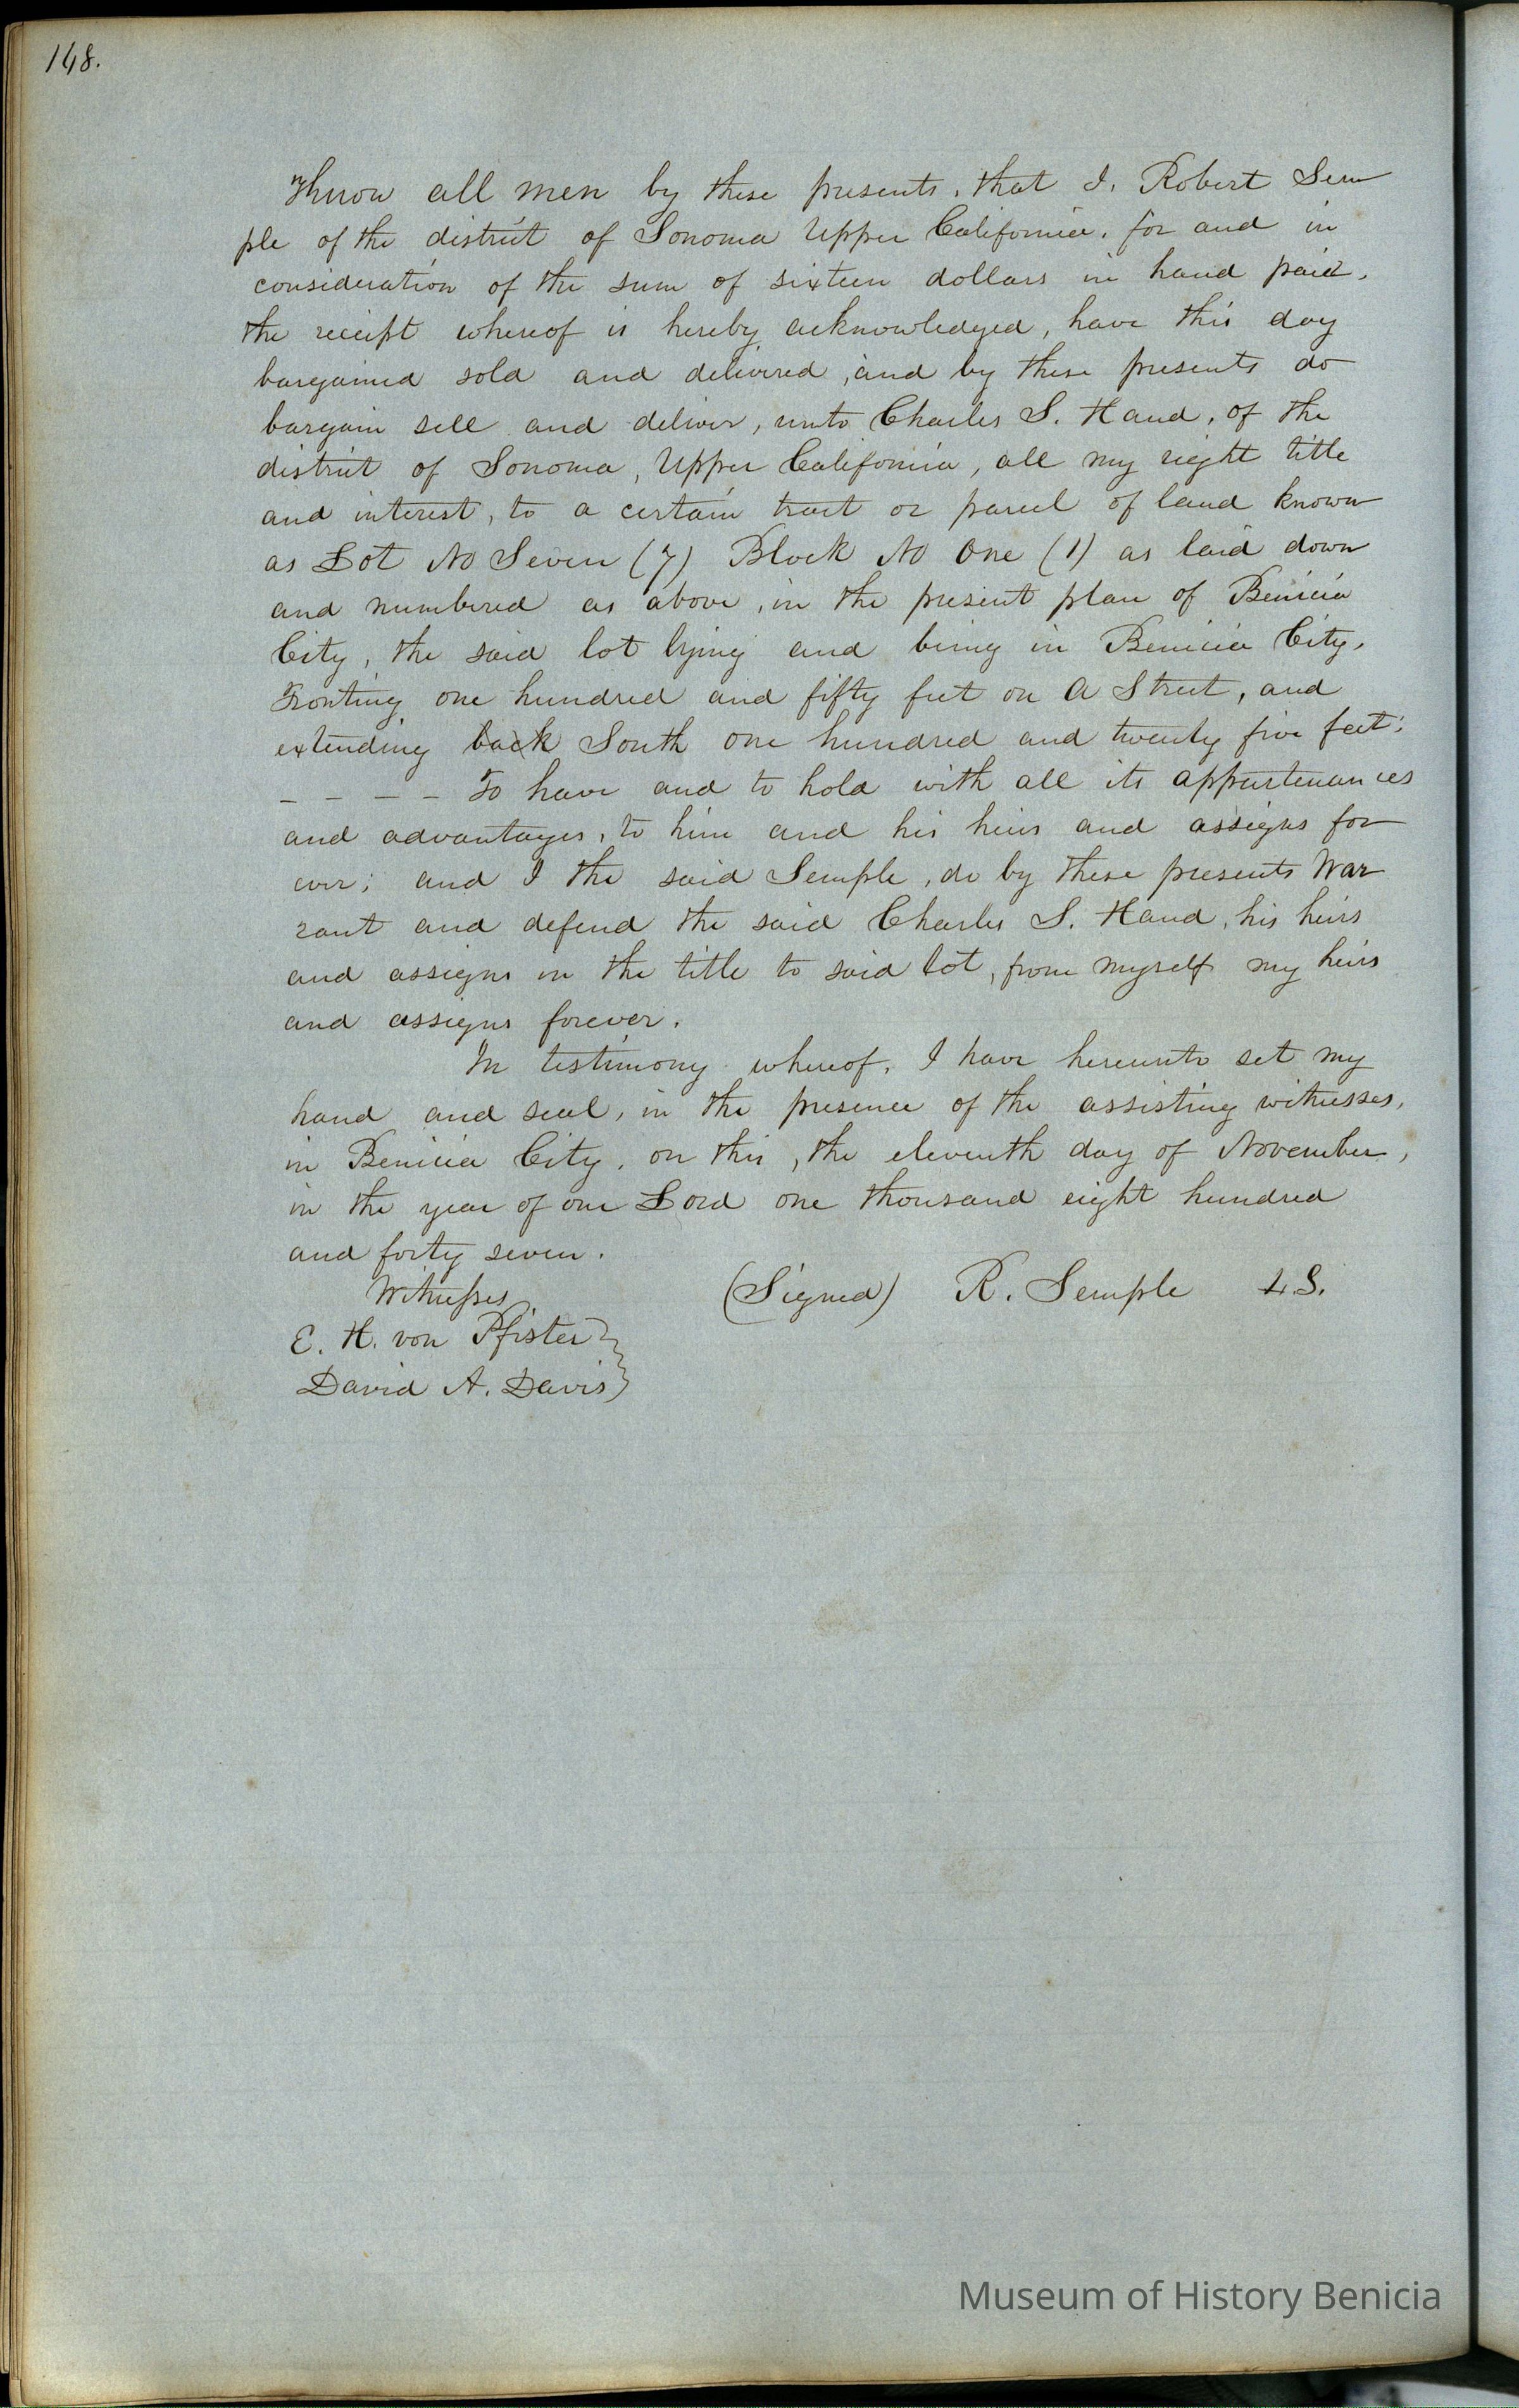 148.
Know all men by these presents, that I, Robert Sem
ple of the district of Sonoma Upper California, for and in
consideration of the sum of sixteen dollars in hand paid,
the receipt whereof is hereby acknowledged, have this day
bargained sold and delivered, and by these presents do
bargain sell and deliver, unto Charles S. Hand, of the
district of Sonoma, Upper California, all my right title
and interest, to a certain tract or parcel of land known
as Lot No Seven (7) Block No One (1) as laid down
and numbered as above, in the present plan of Benicia
City, the said lot lying and being in Benicia City,
Fronting one hundred and fifty feet on A Street, and
extending back South one hundred and twenty five feet;
_ _ _ _ To have and to hold with all its appurtenances
and advantages, to him and his heirs and assigns for
ever; and I the said Semple, do by these presents War
rant and defend the said Charles S. Hand, his heirs
and assigns in the title to said lot, from myself my heirs
and assigns forever.
In testimony whereof, I have hereunto set my
hand and seal, in the presence of the assisting witnesses,
in Benicia City, on this, the eleventh day of November,
in the year of our Lord one thousand eight hundred
and forty seven.
Witnesses (Signed) R. Semple L.S.
E. H. von Pfister
David A. Davis
Museum of History Benicia